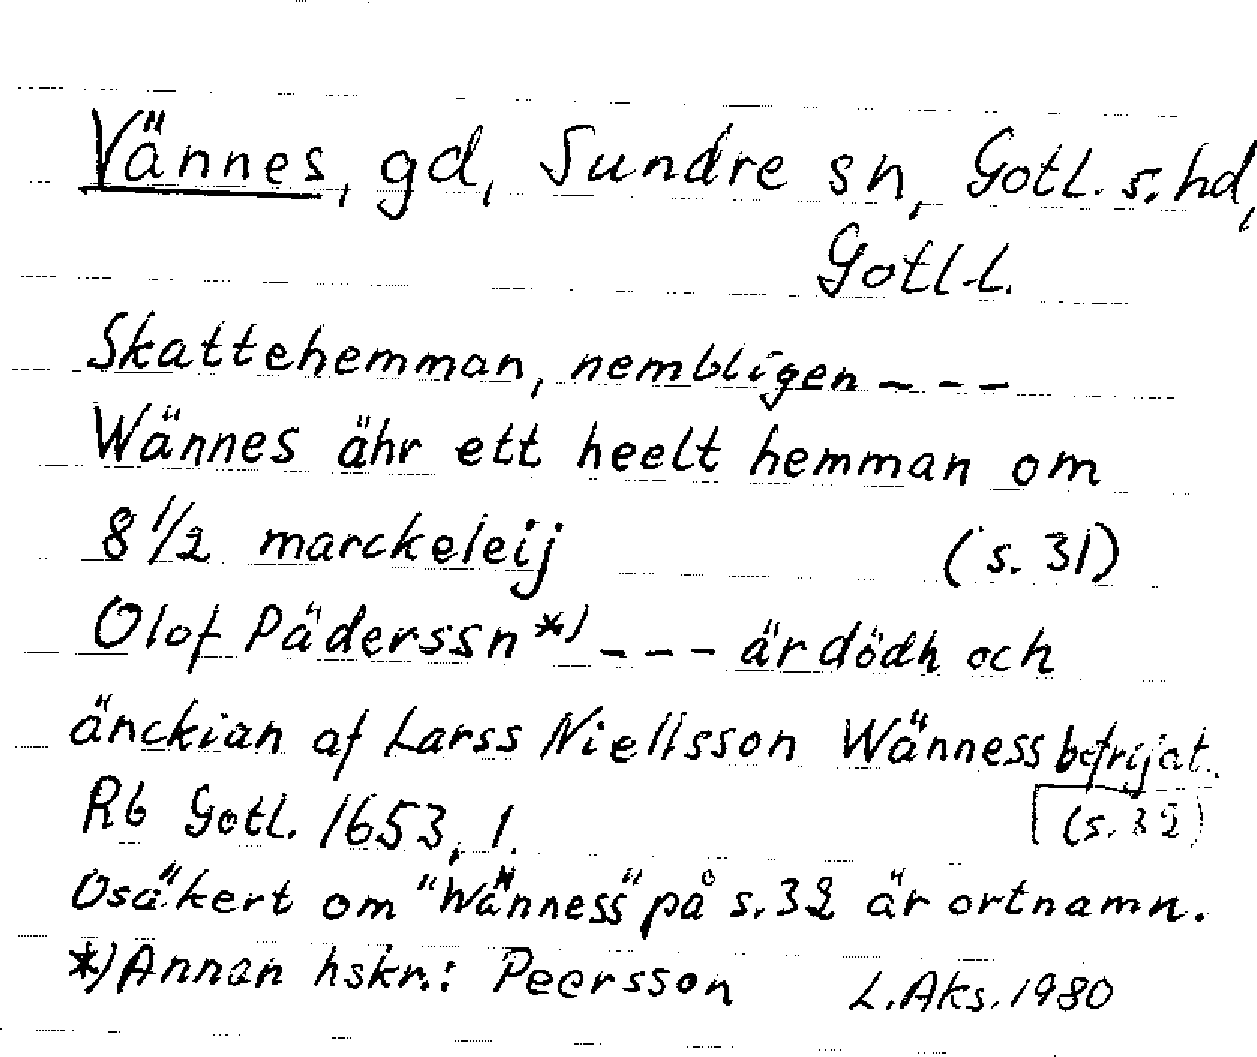 Vännes, gd, Sundre sn, Gotl. s. hd,
Gotl. l.
Skattehemman, nembligen - - -
Wännes ähr ett heelt hemman om
8 1/2 marckeleij (s. 31)
Olof Päderssn *) - - - är dödh och
änckian af Larss Niellsson Wänness befrijat.
Rb Gotl. 1653, 1. (s. 32)
Osäkert om "Wänness" på s. 32 är ortnamn.
*) Annan hskr.: Peersson L. Aks. 1980